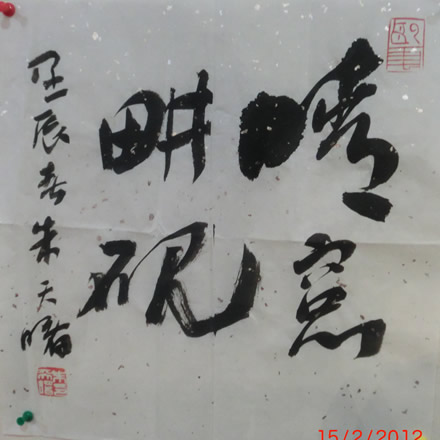 晴窓
畊硯
壬辰春朱天曙
15/2/2012